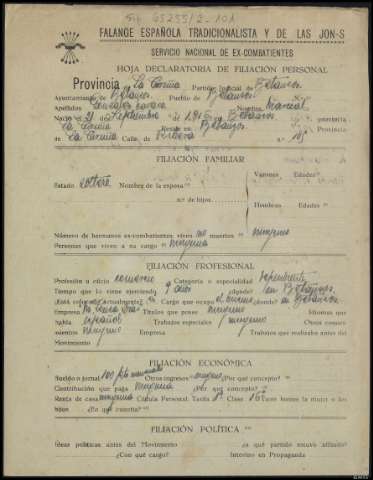 65255/2-101
FALANGE ESPAÑOLA TRADICIONALISTA Y DE LAS JON-S
SERVICIO NACIONAL DE EX-COMBATIENTES
HOJA DECLARATORIA DE FILIACIÓN PERSONAL
Provincia La Coruña Partido Judicial de Betanzos
Ayuntamiento de Betanzos Pueblo de Betanzos
Apellidos Nombre Marcial
Nació el 21 de Septiembre de en Betanzos provincia
La Coruña Reside en Betanzos provincia
La Coruña Calle, de Ribera n.º
FILIACIÓN FAMILIAR
Varones Edades
Estado soltero Nombre de la esposa
n.º de hijos
Hembras Edades
Número de hermanos ex-combatientes vivos no muertos ninguno
Personas que viven a su cargo ninguna
FILIACIÓN PROFESIONAL
Profesión u oficio comercio Categoría o especialidad dependiente
Tiempo que lo viene ejerciendo 9 años ¿dónde? en Betanzos
¿Está colocado actualmente? Cargo que ocupa el mismo ¿dónde? en Betanzos
Empresa Títulos que posee ninguno Idiomas que
habla español Trabajos especiales ninguno Otros conoci-
mientos ninguno Empresa Trabajos que realizaba antes del
Movimiento
FILIACIÓN ECONÓMICA
Sueldo o jornal 100 pts mensuales Otros ingresos ninguno ¿Por qué concepto?
Contribución que paga ninguna ¿Por qué concepto?
Renta de casa ninguna Cédula Personal. Tarifa Clase
hijos ¿En qué cuantía?
FILIACIÓN POLÍTICA
Ideas políticas antes del Movimiento ¿a qué partido estuvo afiliado?
¿Con qué cargo? Intervino en Propaganda